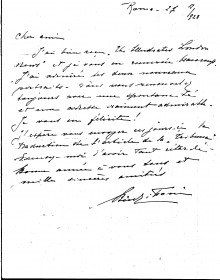 Rome - 27
Cher ami
J'ai bien reçu The Illustrated London
News et je vous en remercie beaucoup.
J'ai admiré les deux nouveaux
portraits. Vous vous renouvelez
toujours avec une spontanéité
et une adresse vraiment admirable.
Je vous en félicite!
J'espère vous envoyer un jour ici la
traduction de l'article de la Tribuna
Excusez-moi d'avoir tant
Bonne année à vous tous et
mille sincères amitiés